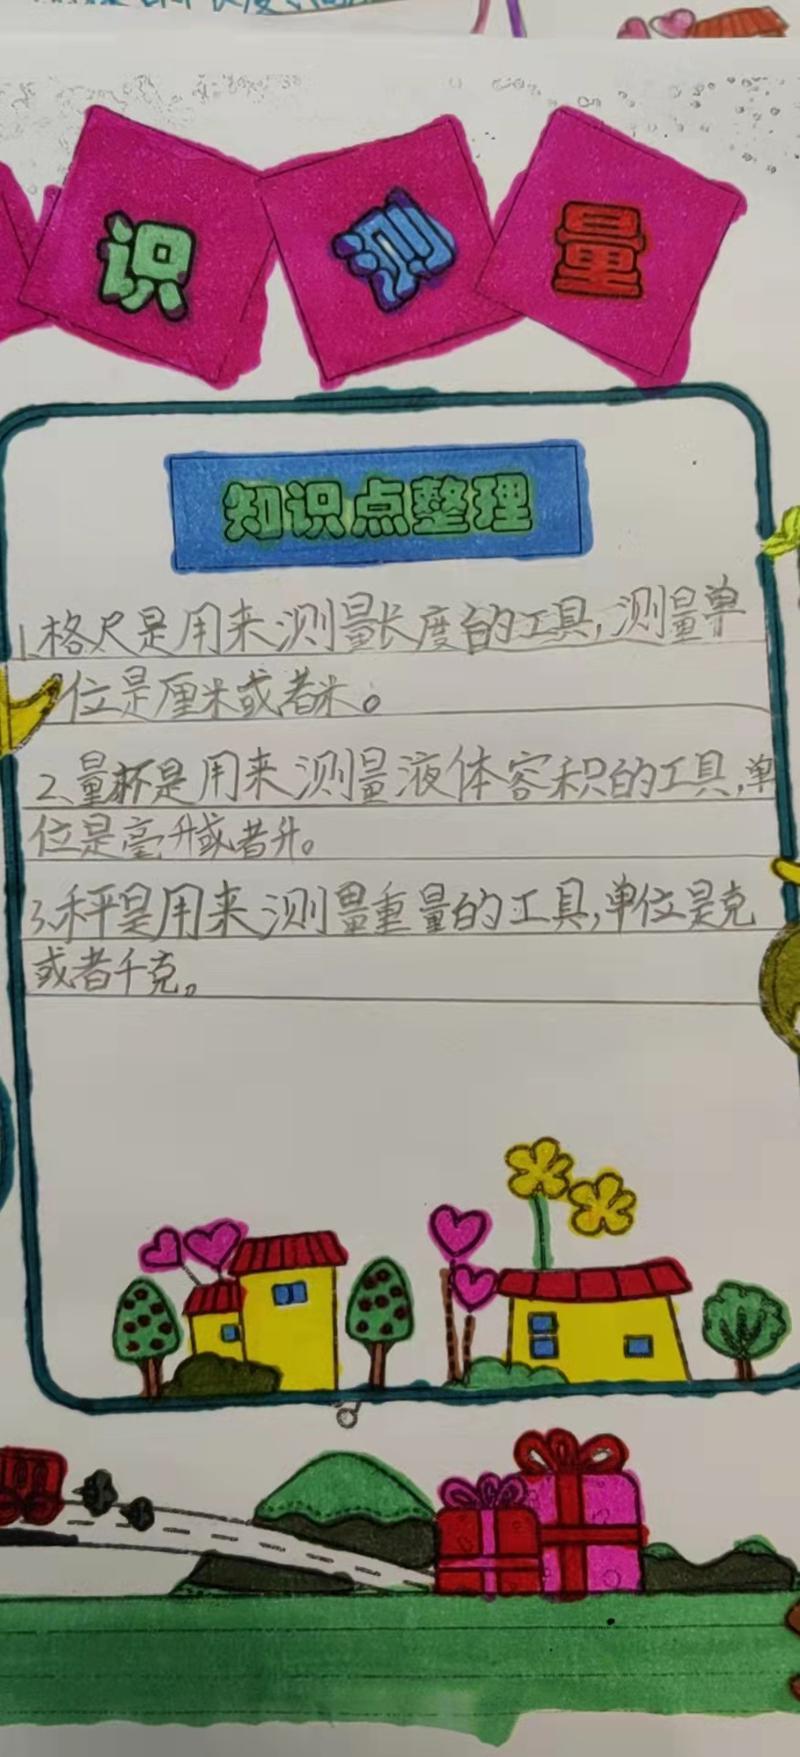 识测量
知识点整理
1.格尺是用来测量长度的工具,测量单
位是厘米或者米。
2、量杯是用来测量液体容积的工具,单
位是毫升或者升。
3、秤是用来测量重量的工具,单位是克
或者千克。